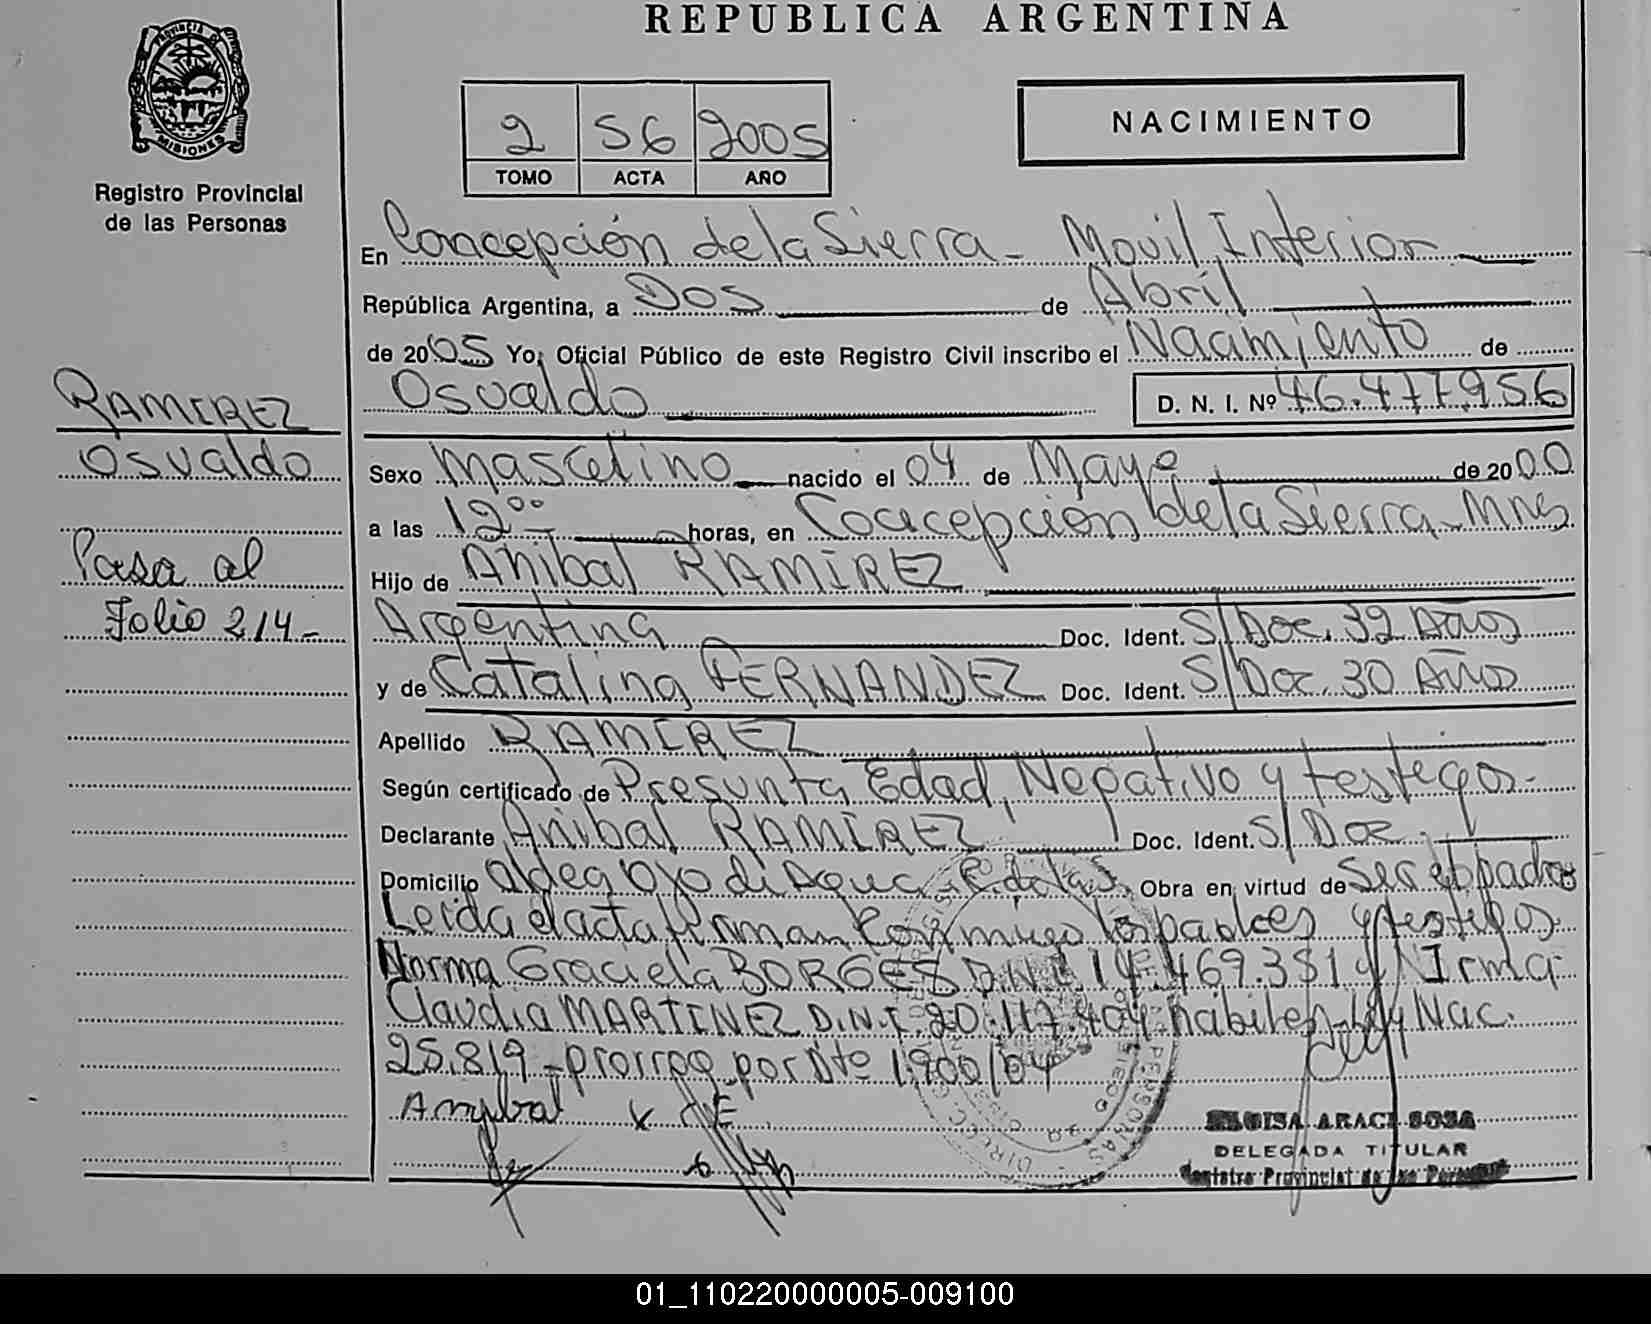 REPUBLICA ARGENTINA
PROVINCIA DE
MISIONES
Registro Provincial
de las Personas
2 56 2005
TOMO ACTA AÑO
NACIMIENTO
En Concepción de la Sierra - Movil Interior
República Argentina, a Dos de Abríl
de 2005 Yo, Oficial Público de este Registro Civil inscribo el Nacimiento de
Osvaldo D. N. I. Nº 46.477.956
RAMIREZ
Osvaldo
Pasa al
Folio 214-
Sexo Masculino nacido el 04 de Mayo de 2000
a las 12 ºº horas, en Concepción de la Sierra - Mnes
Hijo de Anibal RAMÍREZ
Argentina Doc. Ident. S/Doc. 39 Años
y de Catalina FERNANDEZ Doc. Ident. S/Doc. 30 Años
Apellido RAMIREZ
Según certificado de Presunta Edad, Negativo y testigos-
Declarante Anibal RAMÍREZ Doc. Ident. S/Doc.
Domicilio Aldea Ojo di Agua Obra en virtud de
Leida el acta firman conmigo los padres y testigos
Norma Graciela BORGES D.N.I. 14.469.351 y Irma
Claudia MARTINEZ D.N.I. 20.117.404 habiles - Ley Nac.
25.819 - prorrog por Dto 1.900/04
Anybal x
ELOISA ARACI SOSA
DELEGADA TITULAR
Registro Provincial de las Personas
01_110220000005-009100